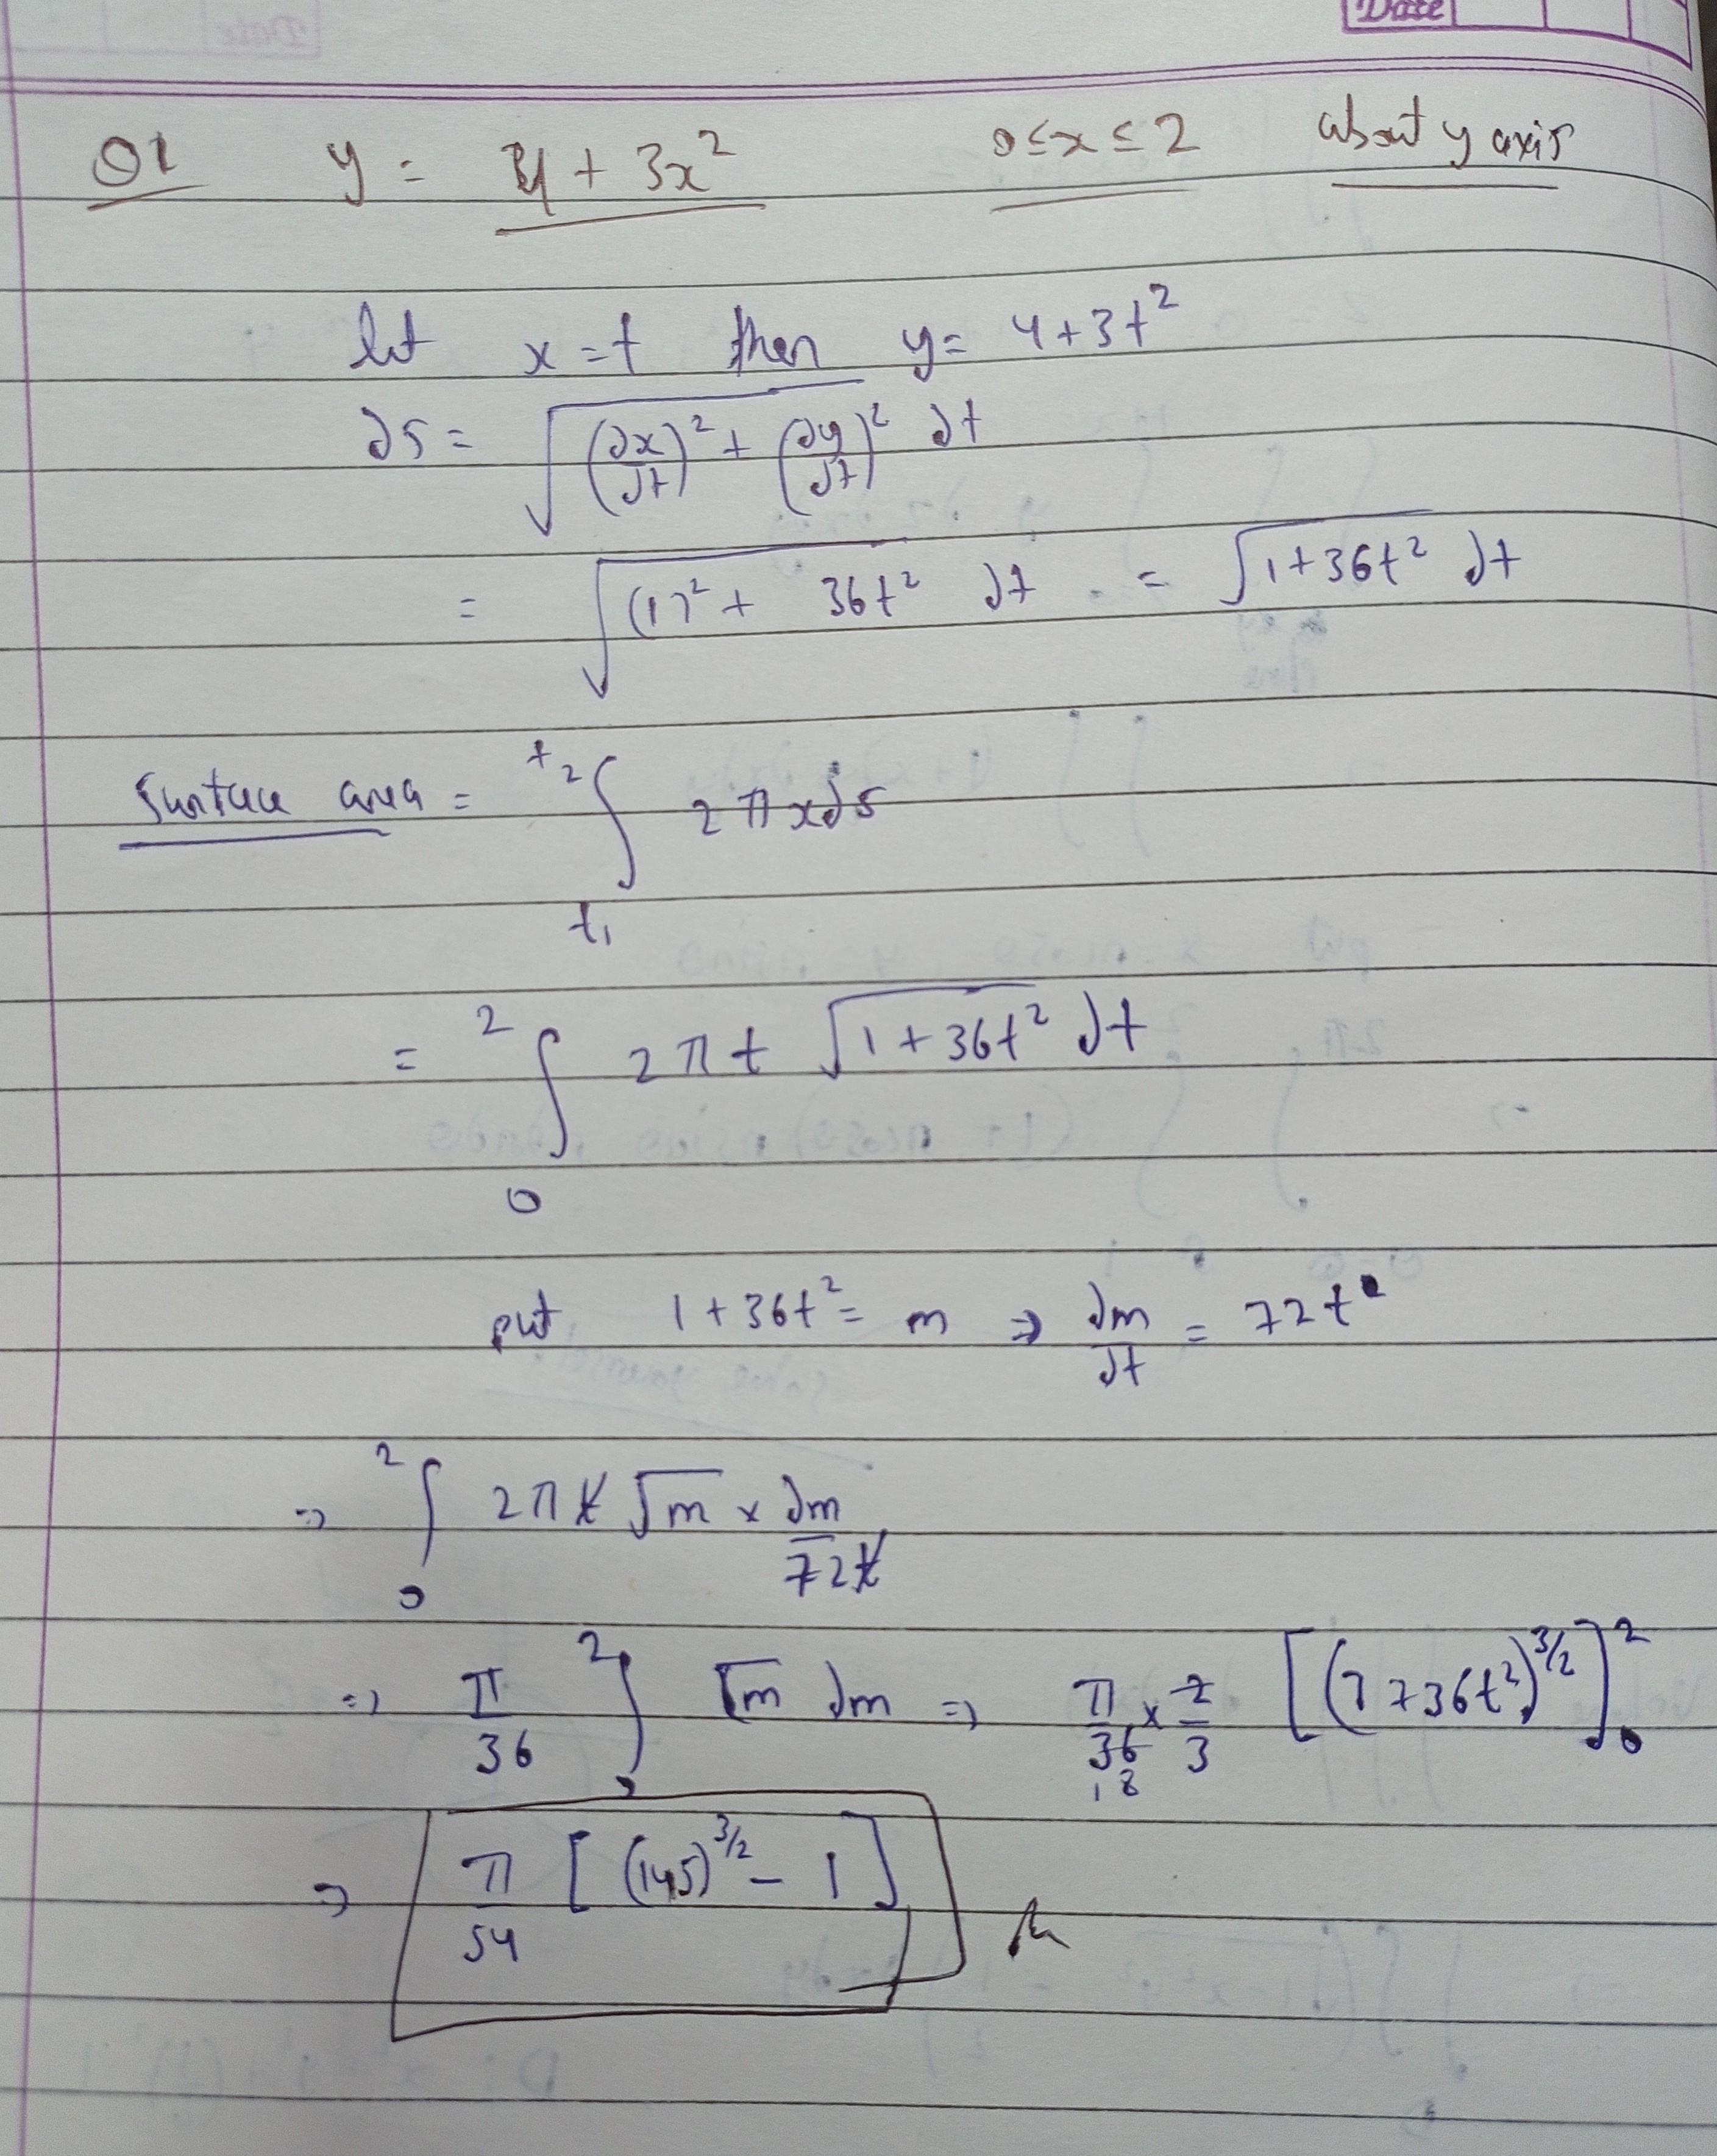 Date
Q1 y = 4 + 3x² 0 ≤ x ≤ 2 about y axis
let x = t then y = 4 + 3t²
ds = √((dx/dt)² + (dy/dt)²) dt
= √((1)² + 36t²) dt = √(1 + 36t²) dt
Surface area = ∫_{t₁}^{t₂} 2πx ds
= ∫_0^2 2πt √(1 + 36t²) dt
put 1 + 36t² = m ⇒ dm/dt = 72t
⇒ ∫_0^2 2πt √m × dm/72t
⇒ π/36 ∫_0^2 √m dm ⇒ π/36 × 2/3 [(1 + 36t²)^{3/2}]_0^2
18
⇒ π/54 [(145)^{3/2} − 1]